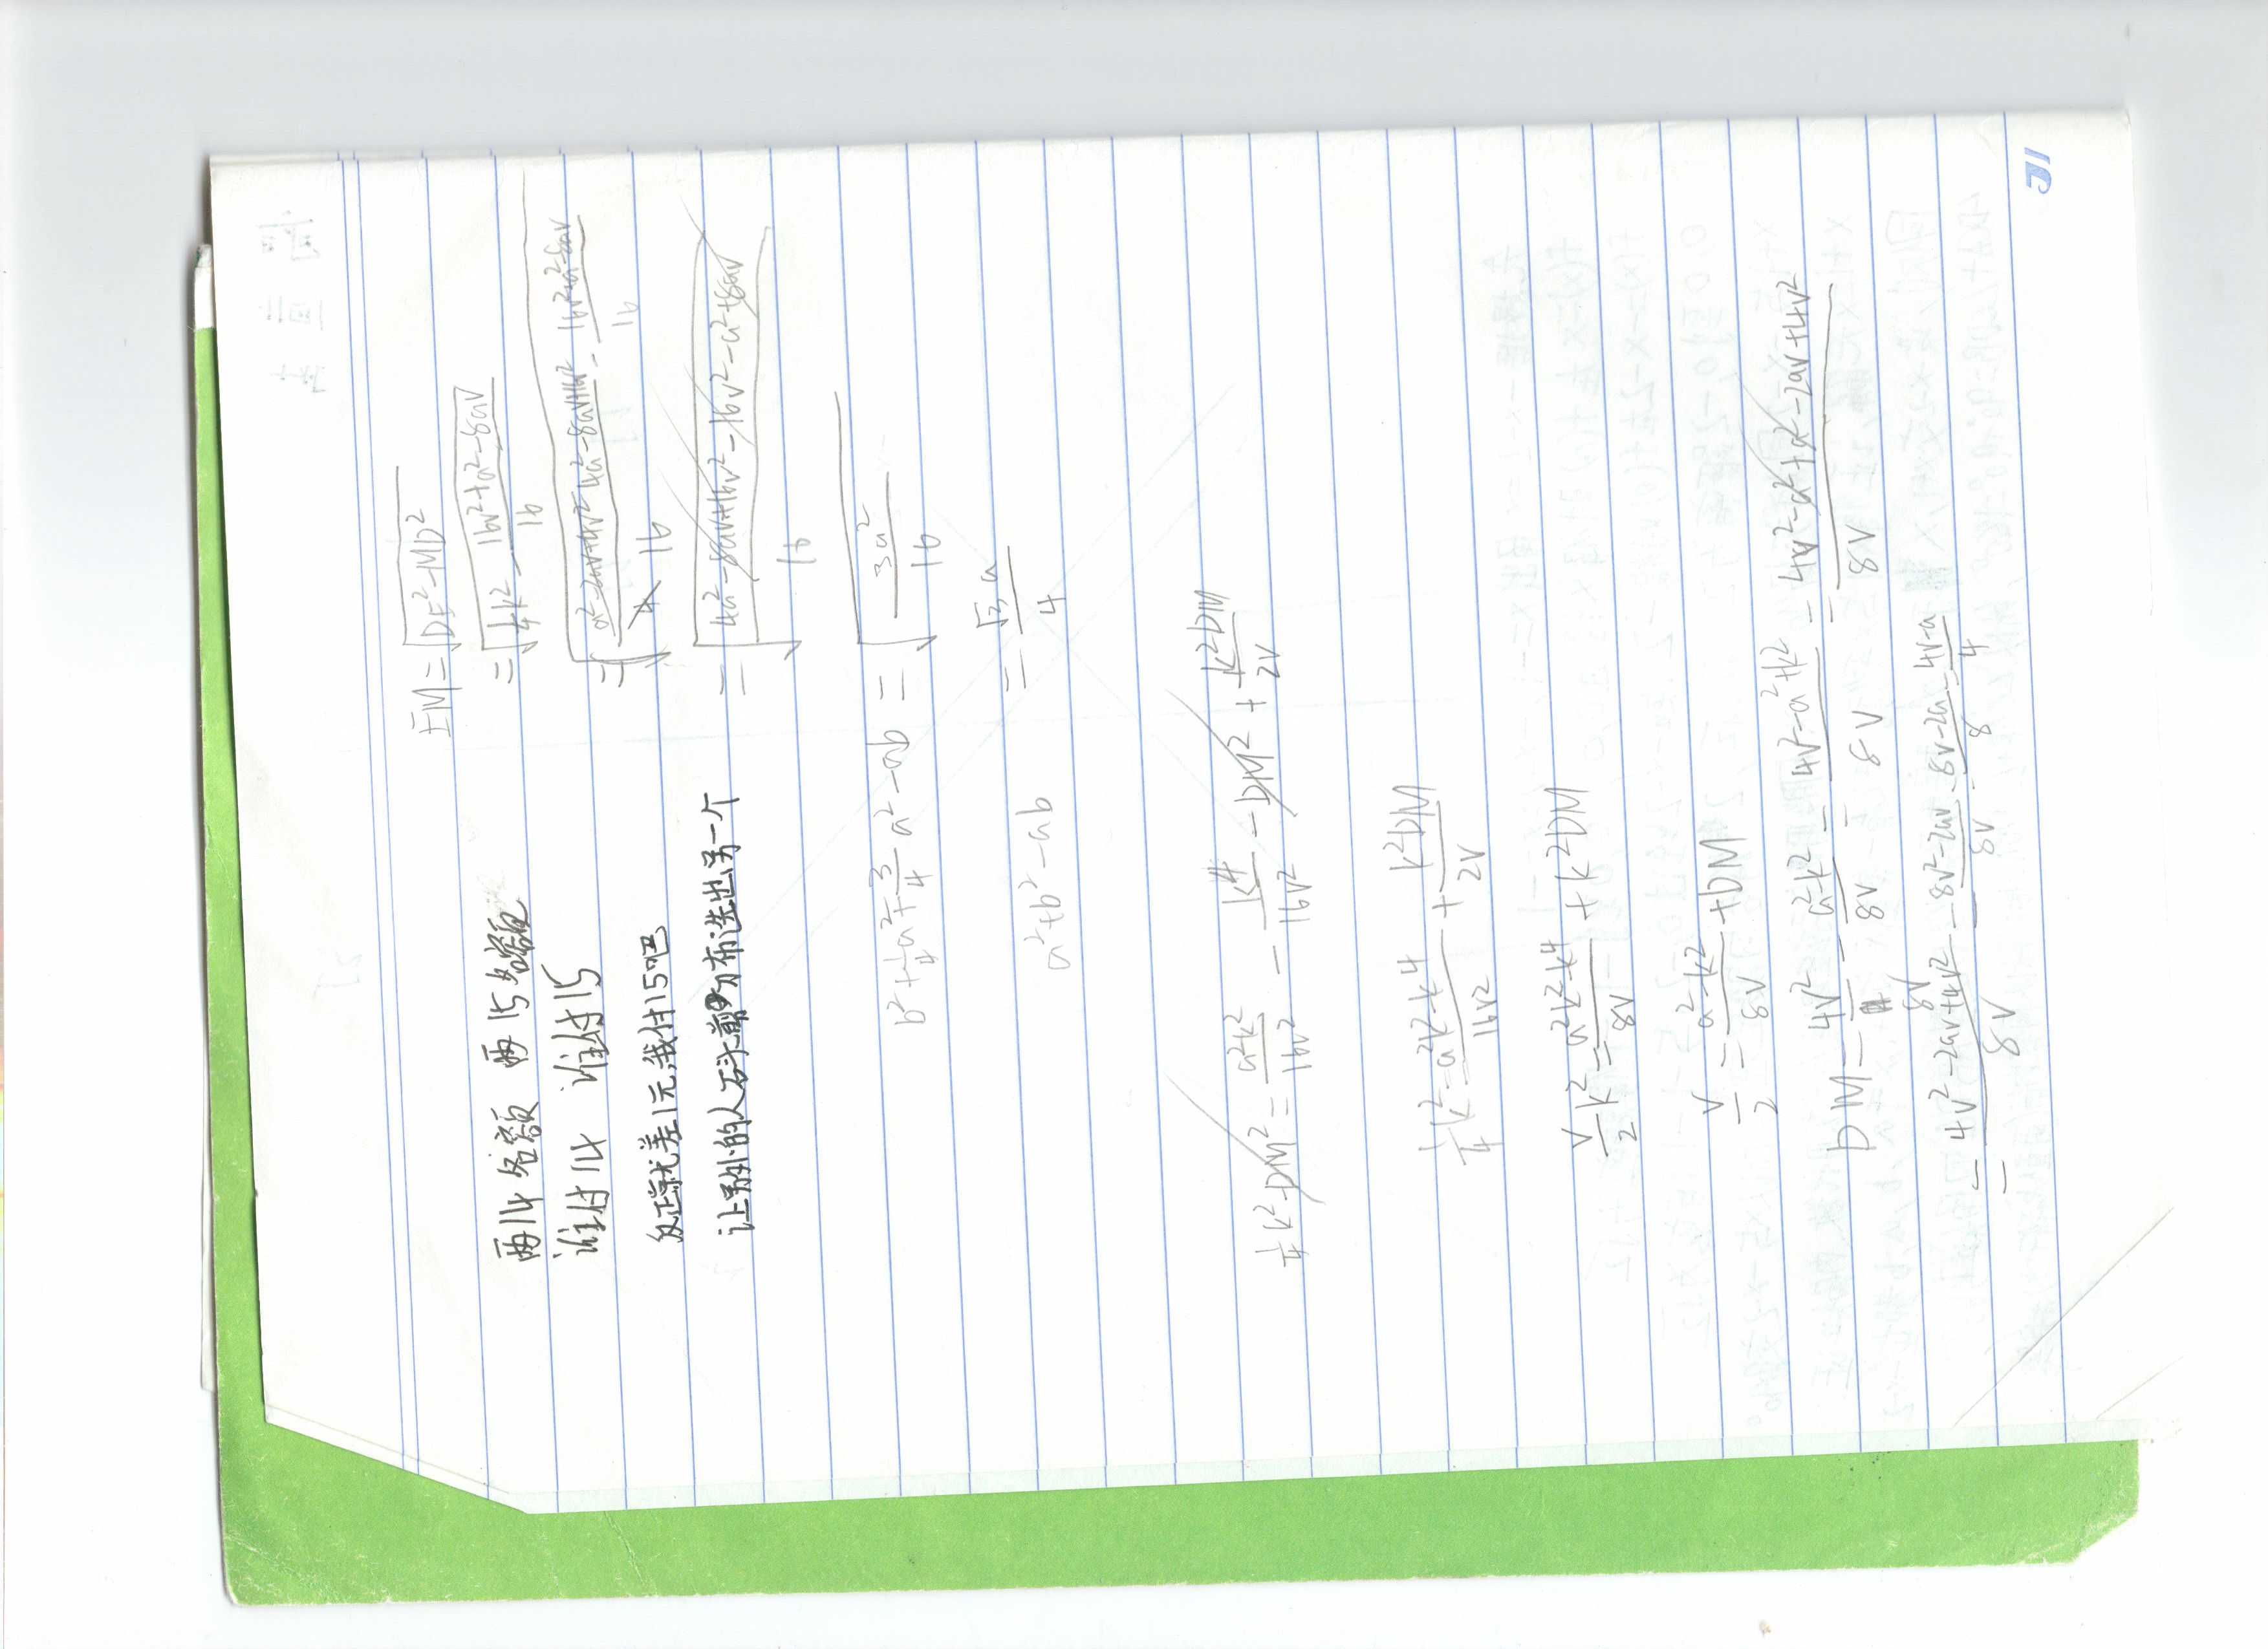 两14名额 两15名额
谁付14 谁付15
反正就差1元,我付15吧
让别的人石头剪刀布选出另一个
EM=√(DE²-MD²)
=√(4k²-(16v²+a²-8av)/16)
=√((a²-2av+4v²)/4 (4a²-8av+16v²)/16-(16v²+a²-8av)/16)
=√((4a²-8av+16v²-16v²-a²+8av)/16)
b²+1/4a²+3/4a²-ab
=√(3a²/16)
a²+b²-ab
=√3a/4
1/4k²-DM²=a²k²/16v²-k⁴/16v²-DM²+k²DM/2v
1/4k²=(a²k²-k⁴)/16v²+k²DM/2v
v/2k²=(a²k²-k⁴)/8v+k²DM
v/2=(a²-k²)/8v+DM
DM=4v²/8v-(a²-k²)/8v=(4v²-a²+k²)/8v=(4v²-a²+a²-2av+4v²)/8v
=(4v²-2av+4v²)/8v=(8v²-2av)/8v=(8v-2a)/8=(4v-a)/4
=